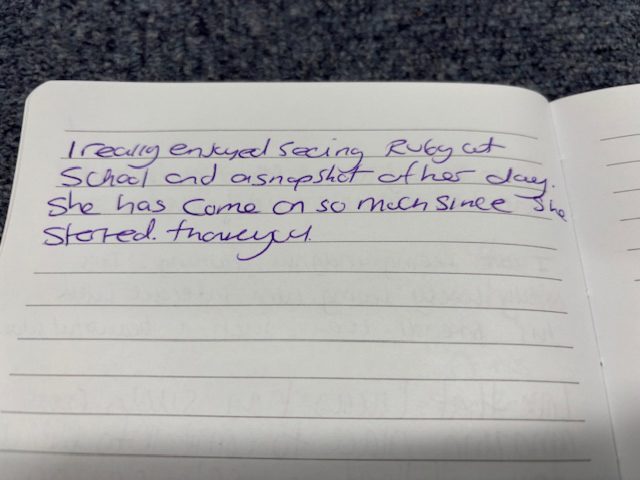 I really enjoyed seeing Ruby at
School and a snapshot of her day.
She has come on so much since she
Started. thankyou.